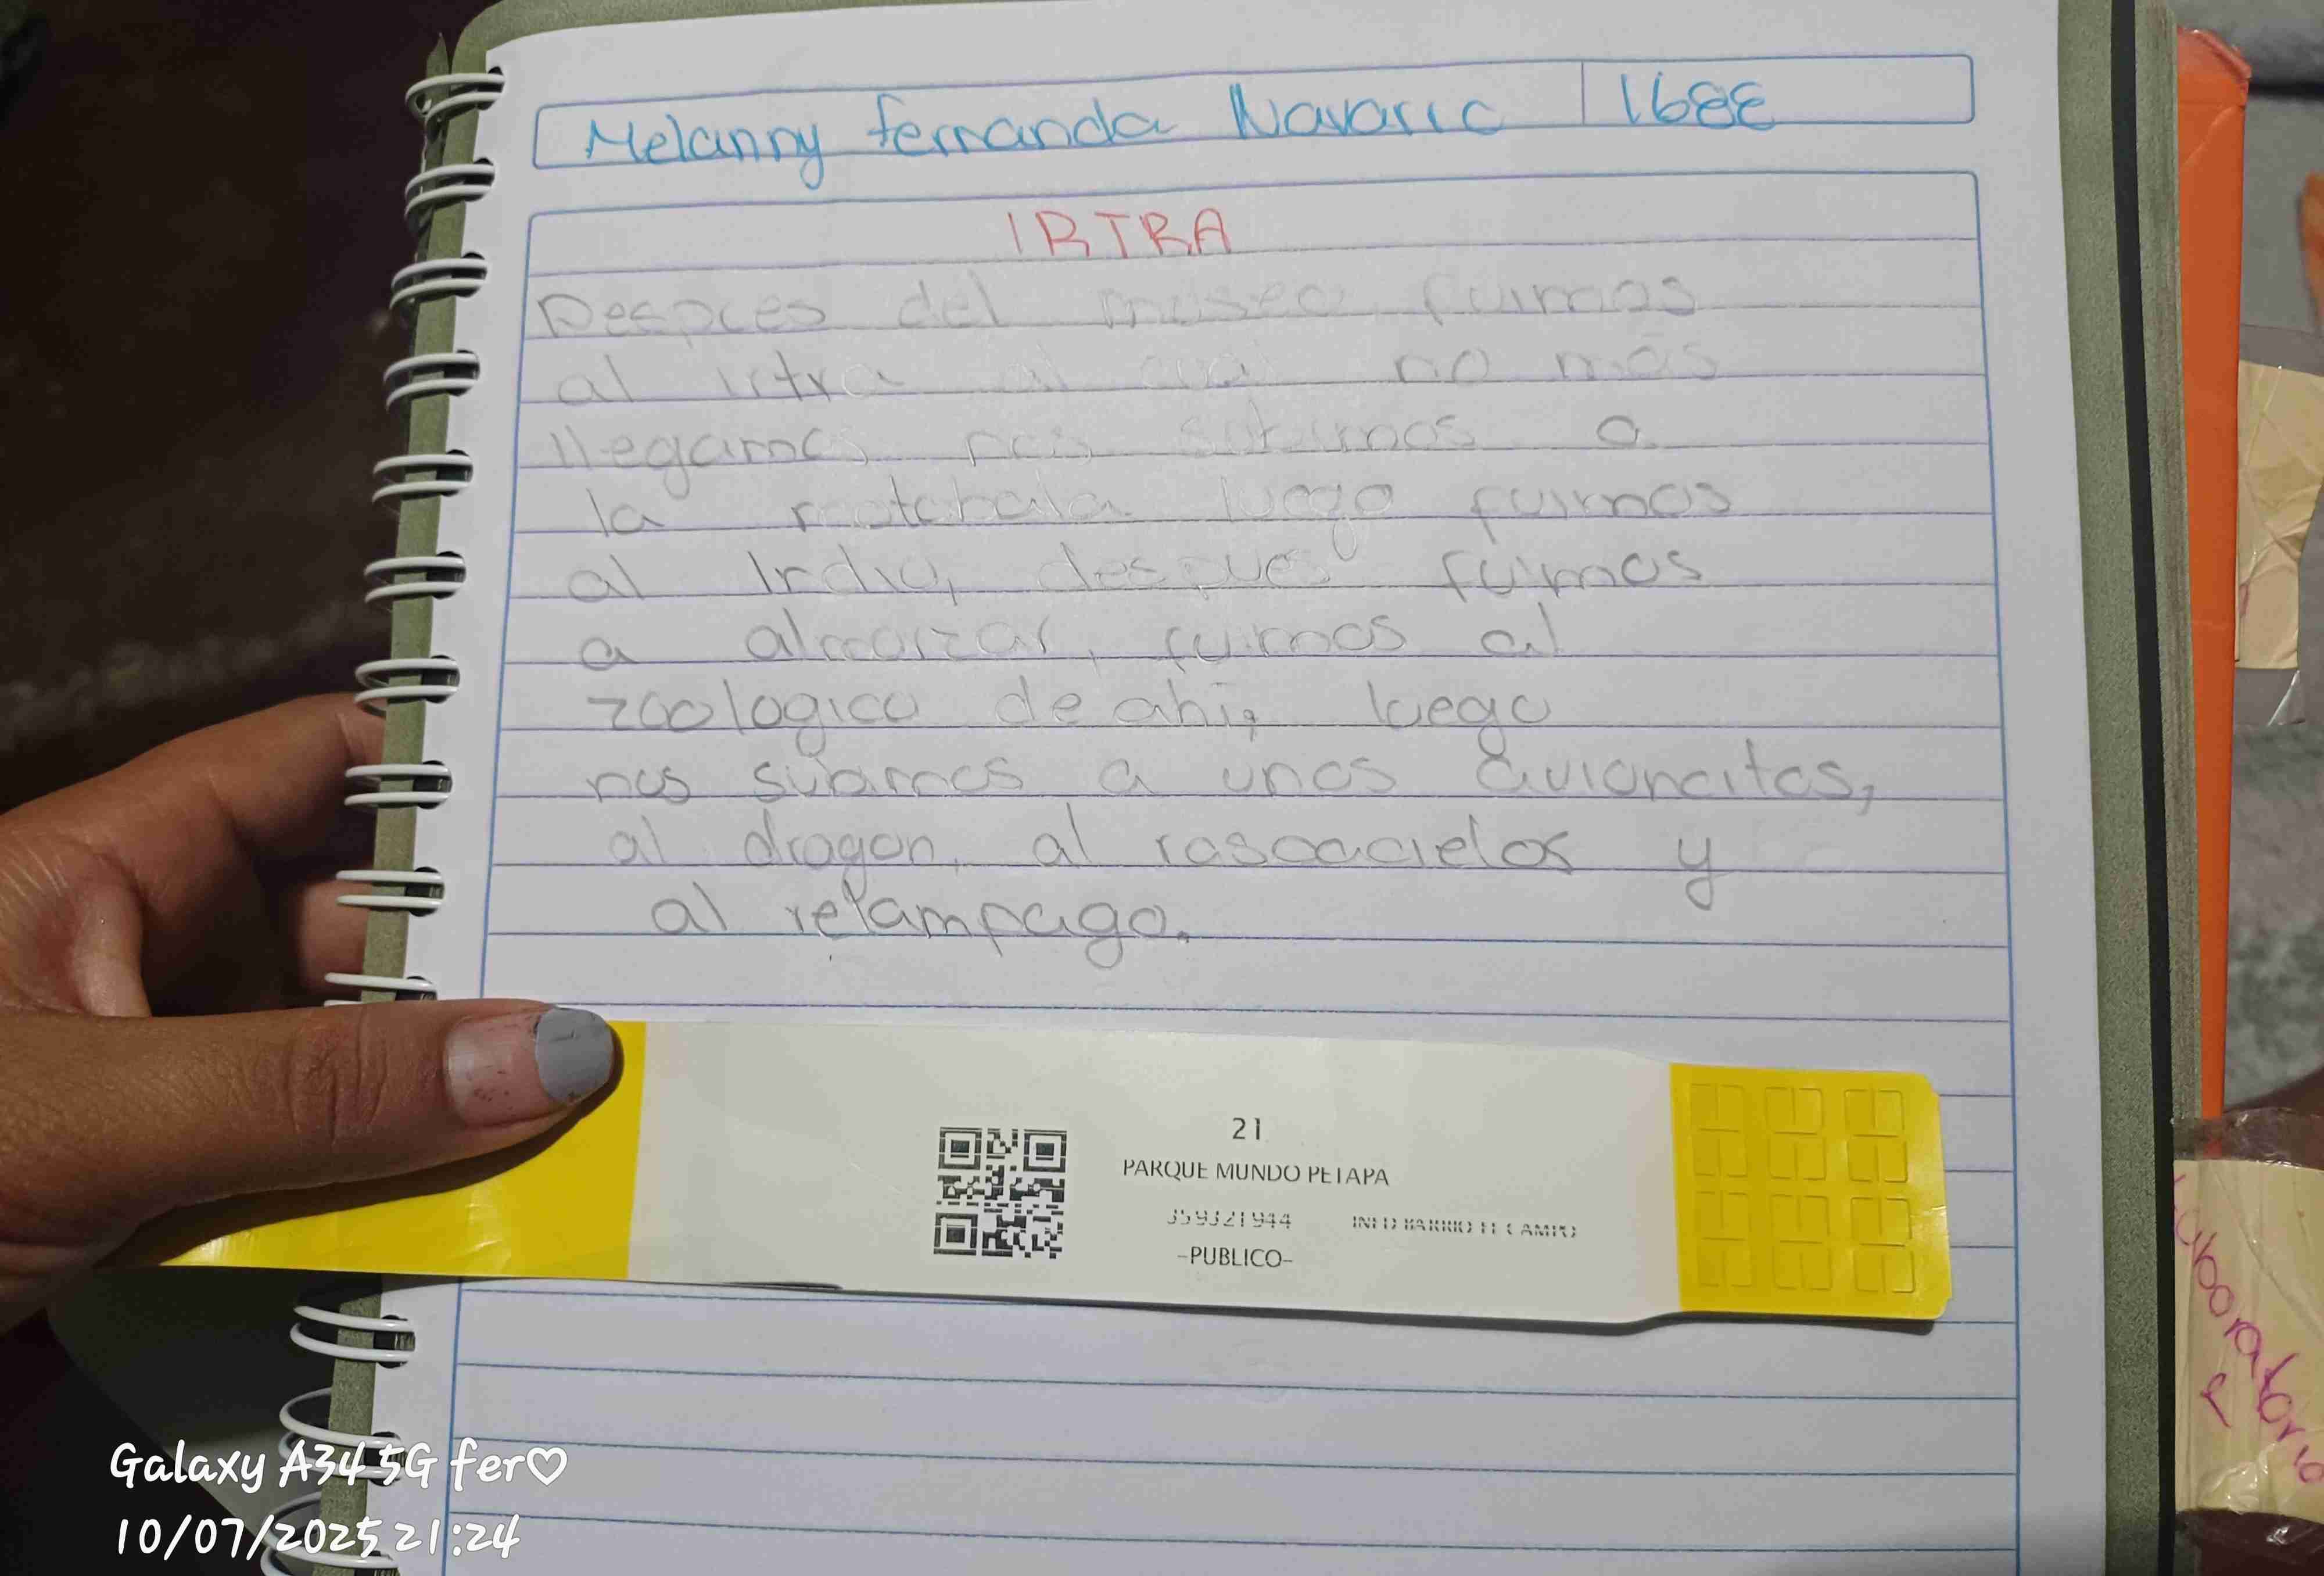 Melanny fernanda Navaric 1688
IRTRA
Despues del museo fuimos
al irtra al cual no más
llegamos nos subimos a
la montabala luego fuimos
al Indio, despues fuimos
a almorzar, fuimos al
zoologico de ahi, luego
nos subamos a unos avioncitos,
al dragon, al rascacielos y
al relampago.
21
PARQUE MUNDO PETAPA
359321944 INED BARRIO EL CAMPO
-PUBLICO-
Laboratorio
Galaxy A34 5G fer♡
10/07/2025 21:24